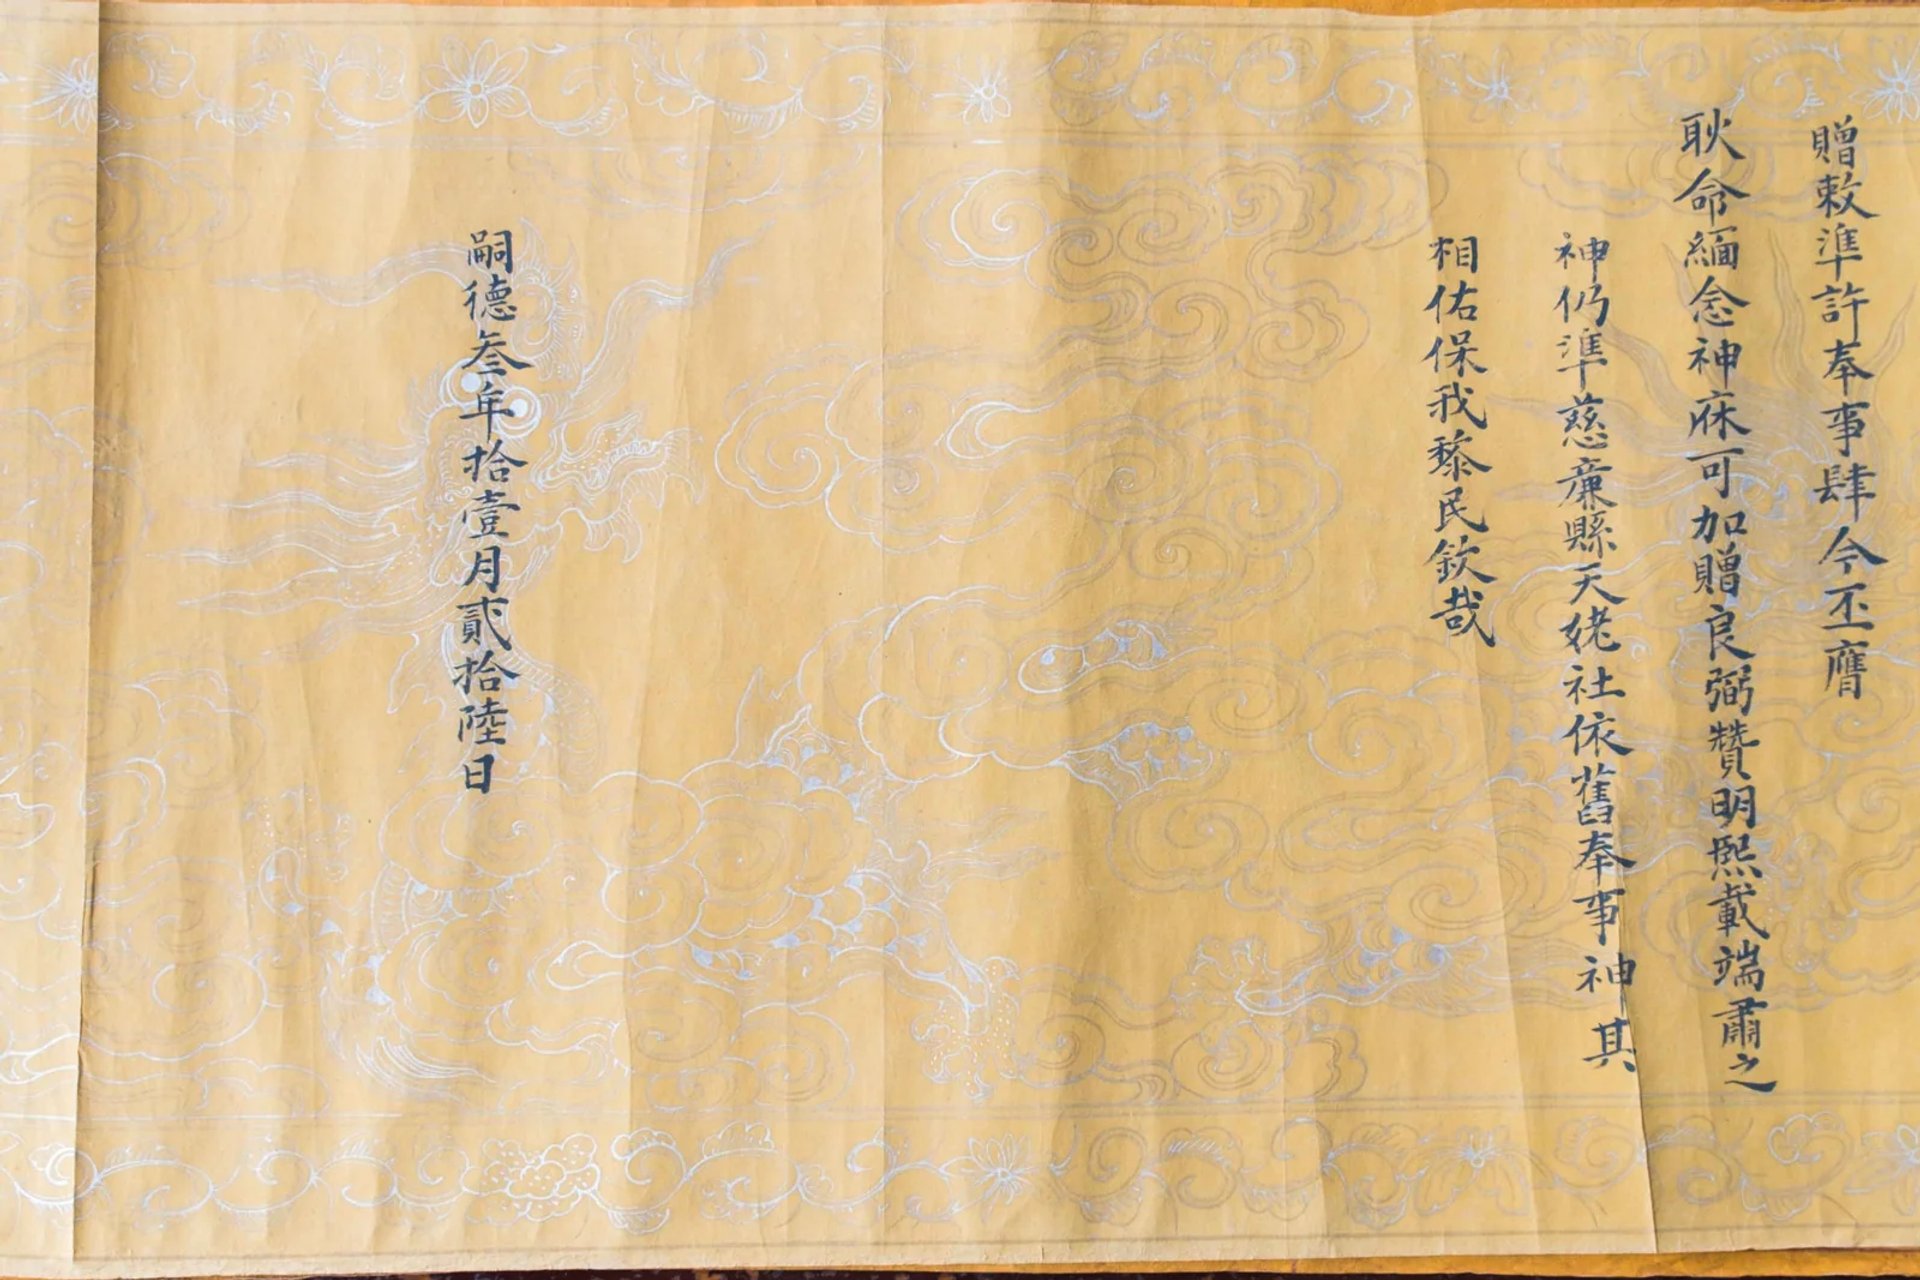 贈敕準許奉事肆今丕膺
耿命緬念神庥可加贈良弼贊明熙載端肅之
神仍準慈廉縣天姥社依舊奉事神其
相佑保我黎民欽哉
嗣德叁年拾壹月貳拾陸日